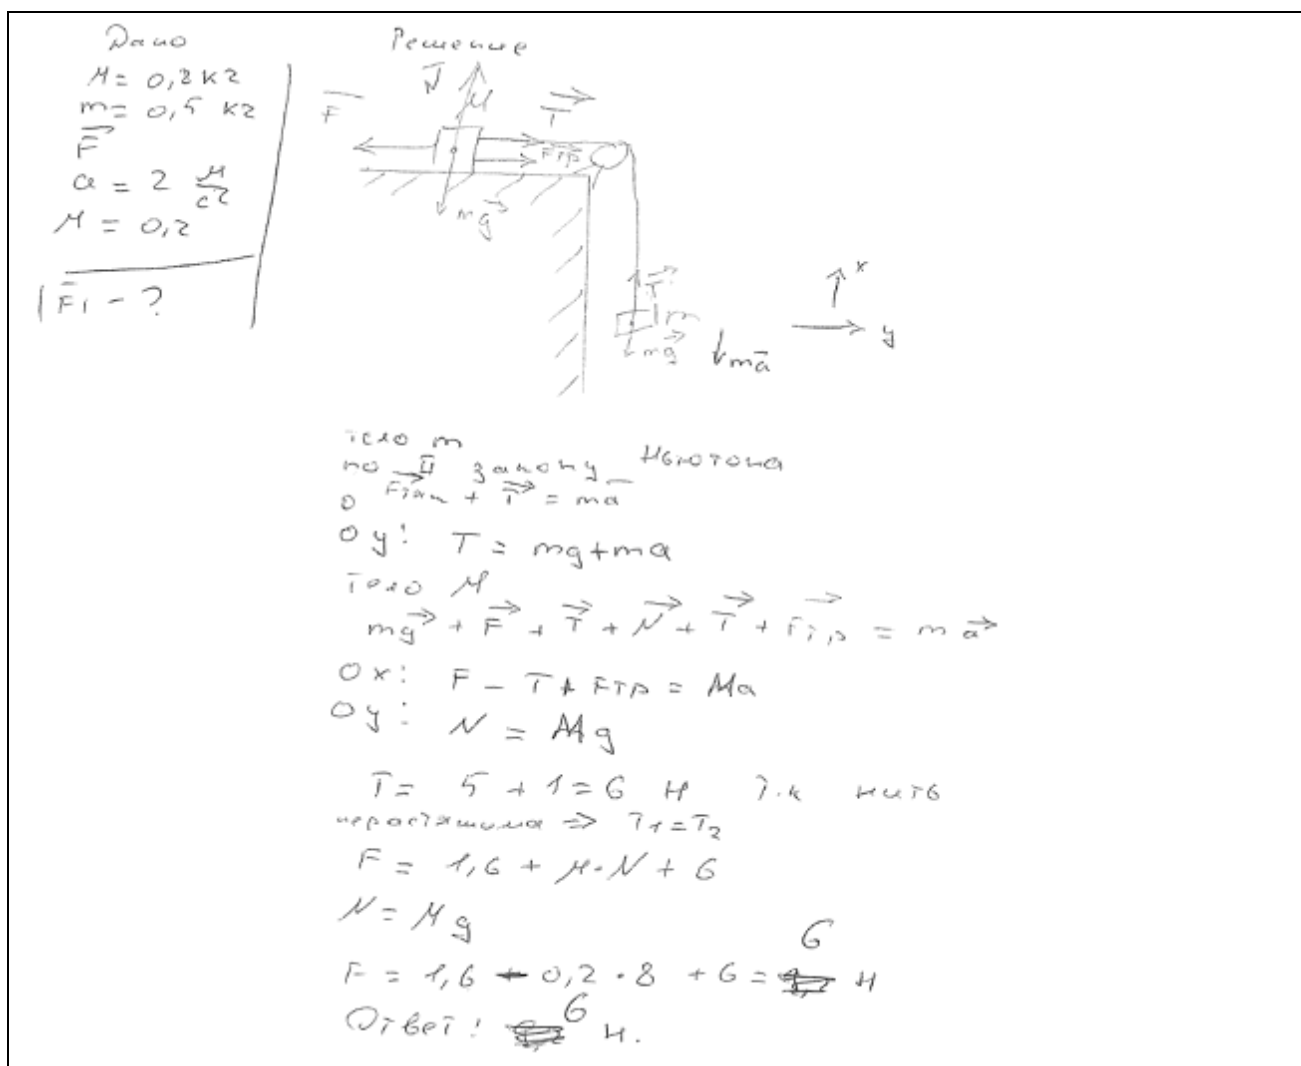 Дано
M = 0,8 кг
m = 0,5 кг
F
a = 2 м/с2
μ = 0,2
|F| - ?
Решение
N
M
F
T
Fтр
mg
T
m
mg
ma
x
y
тело m
по II закону Ньютона
Fтяж + T = ma
Oy: T = mg+ma
тело M
mg + F + T + N + T + Fтр = ma
Ox: F - T + Fтр = Ma
Oy: N = Mg
T = 5 + 1 = 6 Н т.к нить
нерастяжима => T1=T2
F = 1,6 + μ·N + 6
N = Mg
F = 1,6 - 0,2 · 8 + 6 = 6 Н
Ответ: 6 Н.